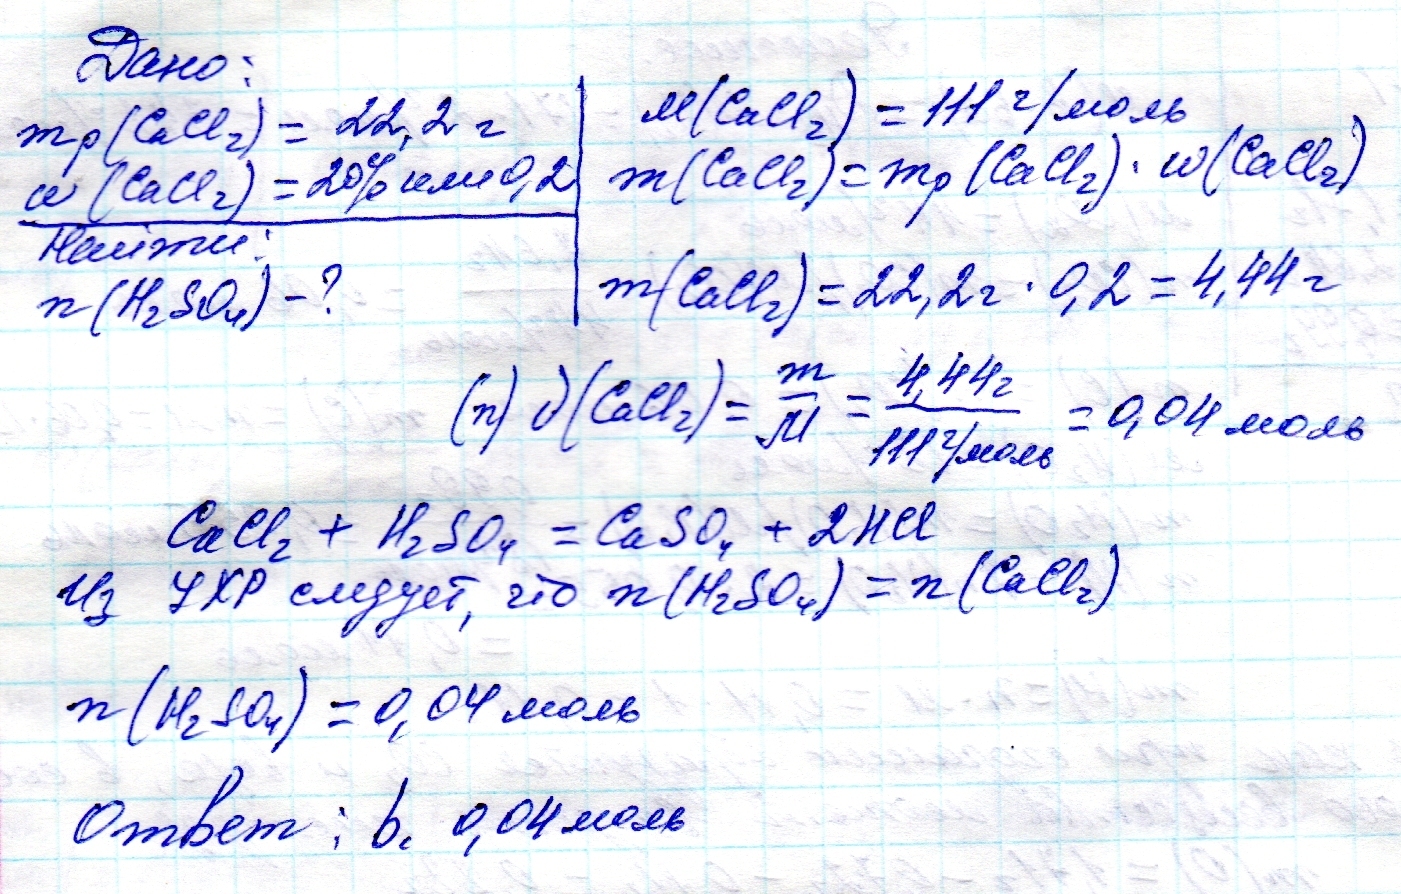 Дано:
mр(CaCl₂) = 22,2 г
w(CaCl₂) = 20% или 0,2
Найти:
n(H₂SO₄) - ?
M(CaCl₂) = 111 г/моль
m(CaCl₂) = mр(CaCl₂) · w(CaCl₂)
m(CaCl₂) = 22,2 г · 0,2 = 4,44 г
(n) υ(CaCl₂) = m/M = 4,44 г/111 г/моль = 0,04 моль
CaCl₂ + H₂SO₄ = CaSO₄ + 2HCl
Из УХР следует, что n(H₂SO₄) = n(CaCl₂)
n(H₂SO₄) = 0,04 моль
Ответ: b. 0,04 моль